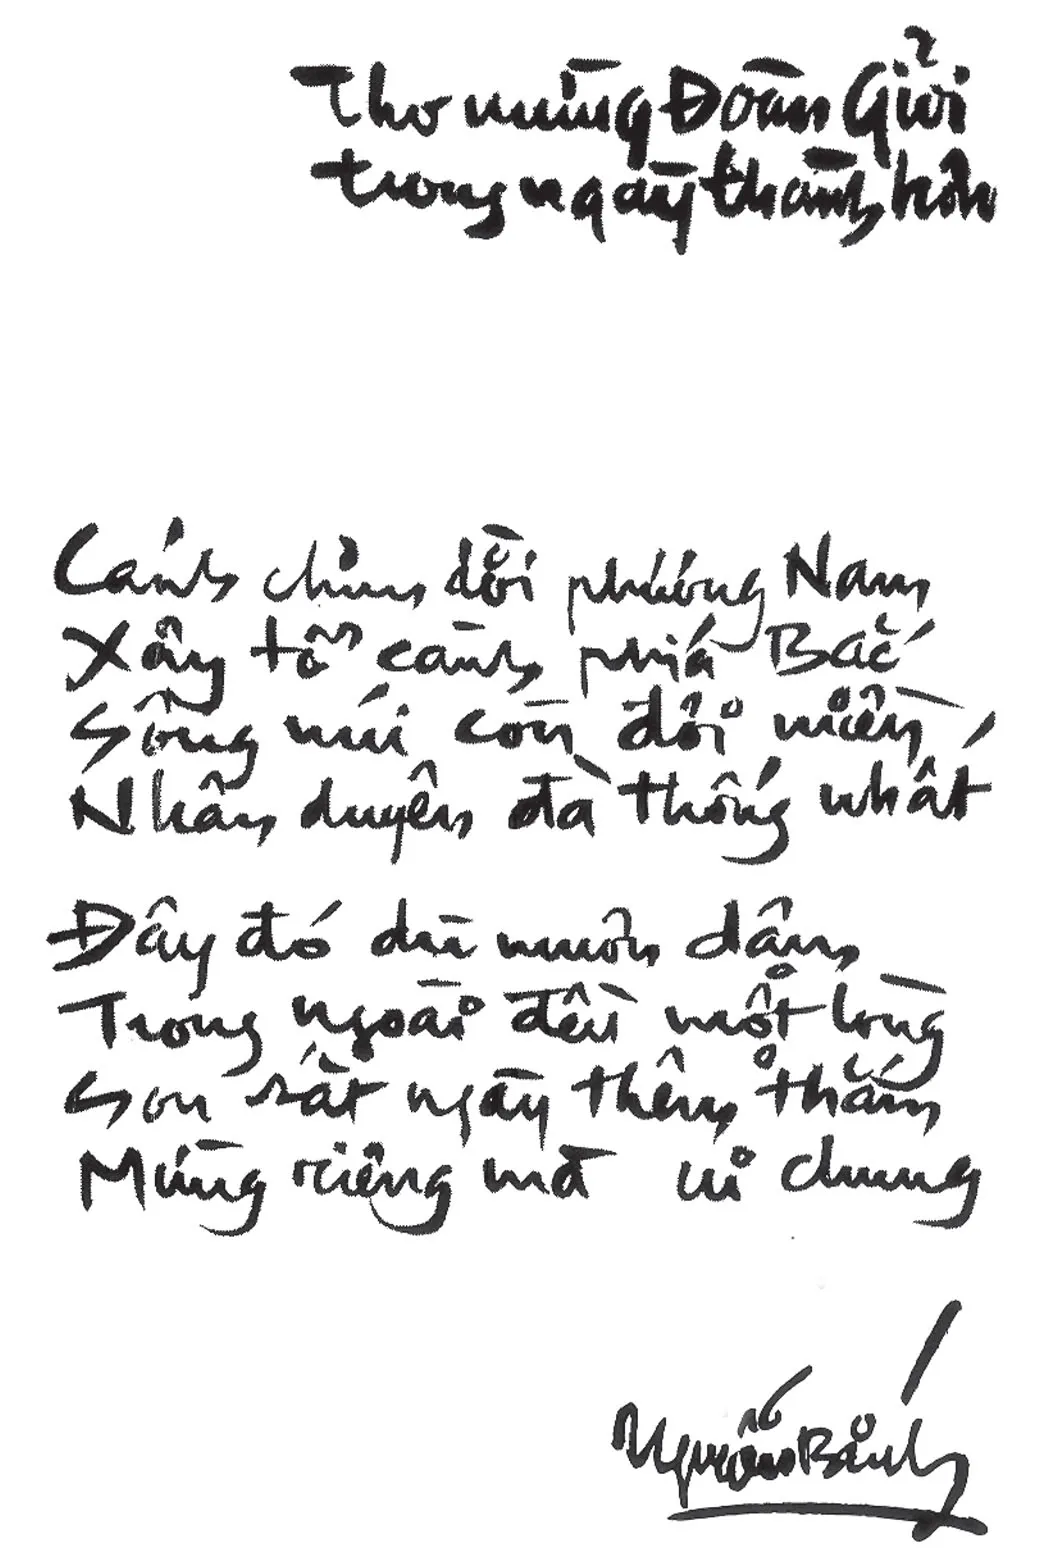 Thơ mừng Đoàn Giỏi
trong ngày thành hôn
Cánh chim dời phương Nam
Xây tổ cành phía Bắc
Sông núi còn đôi miền
Nhân duyên đà thống nhất
Đây đó dù muôn dâm
Trong ngoài đều một lòng
Son sắt ngày thêm thắm
Mừng riêng mà vui chung
Nguyễn Bính